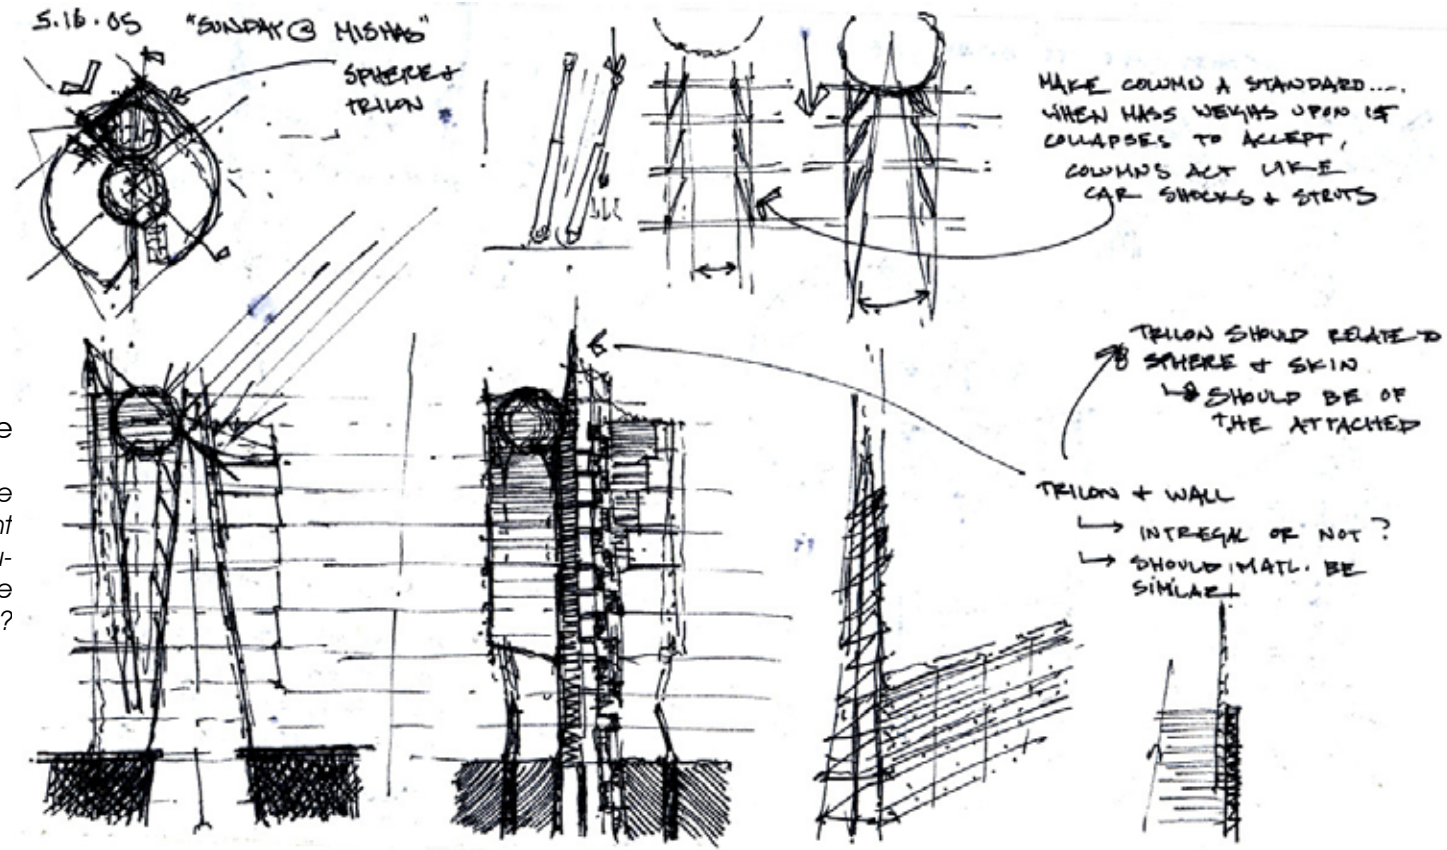 5.16.05 "SUNDAY @ MISHAS"
SPHERE +
TRILON
MAKE COLUMN A STANDARD....
WHEN MASS WEIGHS UPON IT
COLLAPSES TO ACCEPT,
COLUMNS ACT LIKE
CAR SHOCKS & STRUTS
TRILON SHOULD RELATE TO
SPHERE & SKIN
SHOULD BE OF
THE ATTACHED
TRILON + WALL
INTREGAL OR NOT?
SHOULD MATL. BE
SIMILAR
e
e
nt
u-
e
?